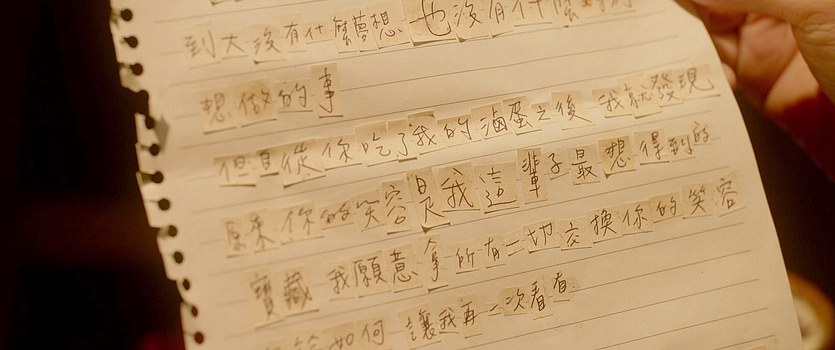 到大沒有什麼夢想 也沒有什麼特別
想做的事
但自從你吃了我的滷蛋之後 我就發現
原來你的笑容是我這輩子最想得到的
寶藏 我願意拿所有一切交換你的笑容
如何 讓我再一次看看